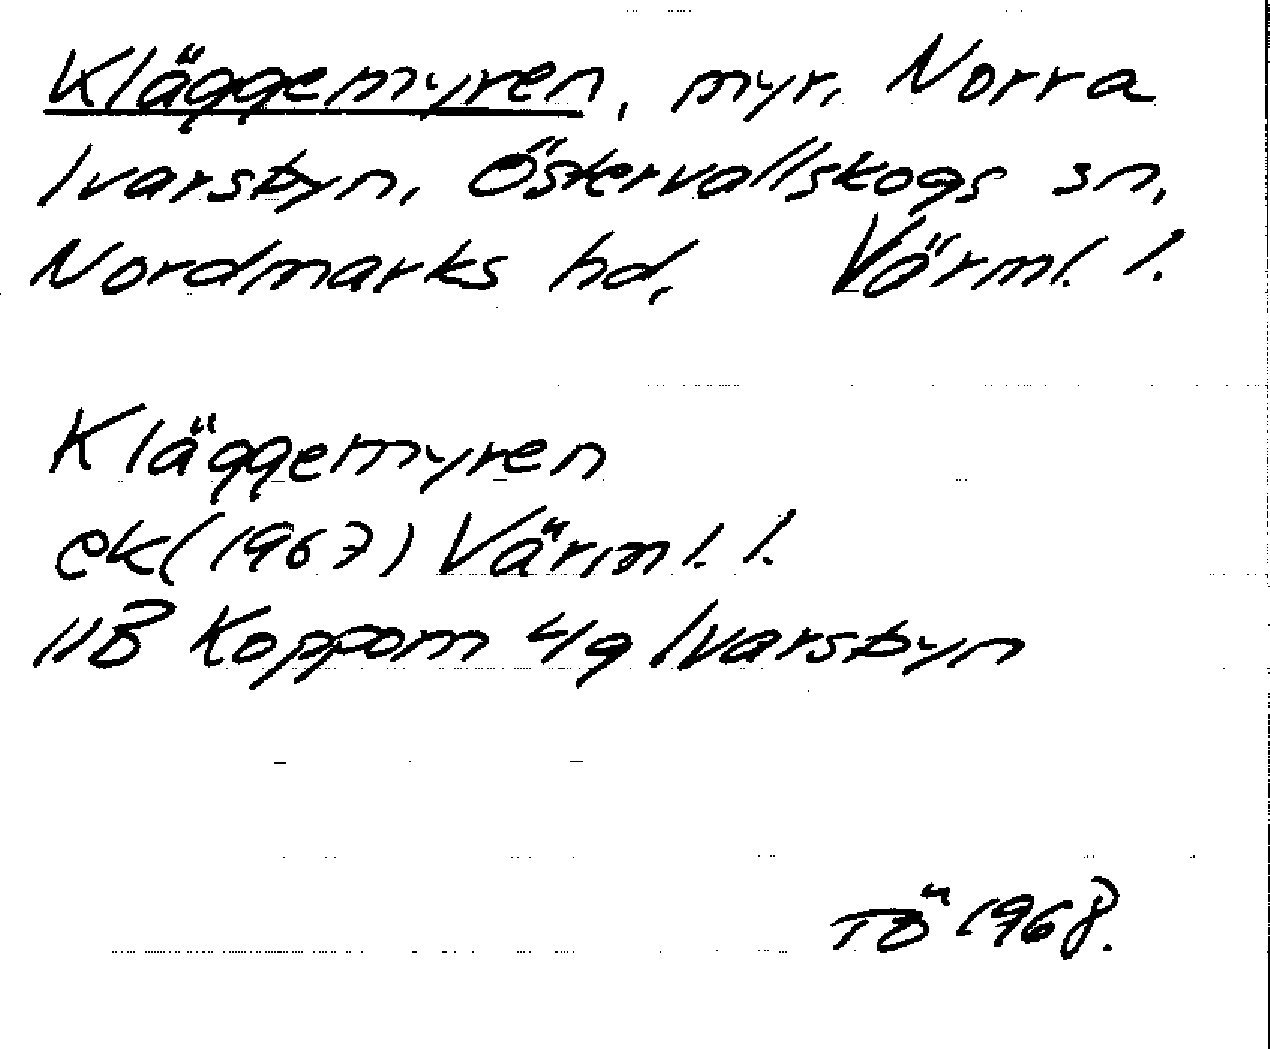 Kläggemyren, myr, Norra
Ivarsbyn, Östervallskogs sn,
Nordmarks hd, Värml. l.
Kläggemyren
ek(1967) Värml. l.
11B Koppom 4g Ivarsbyn
TÖ 1968.